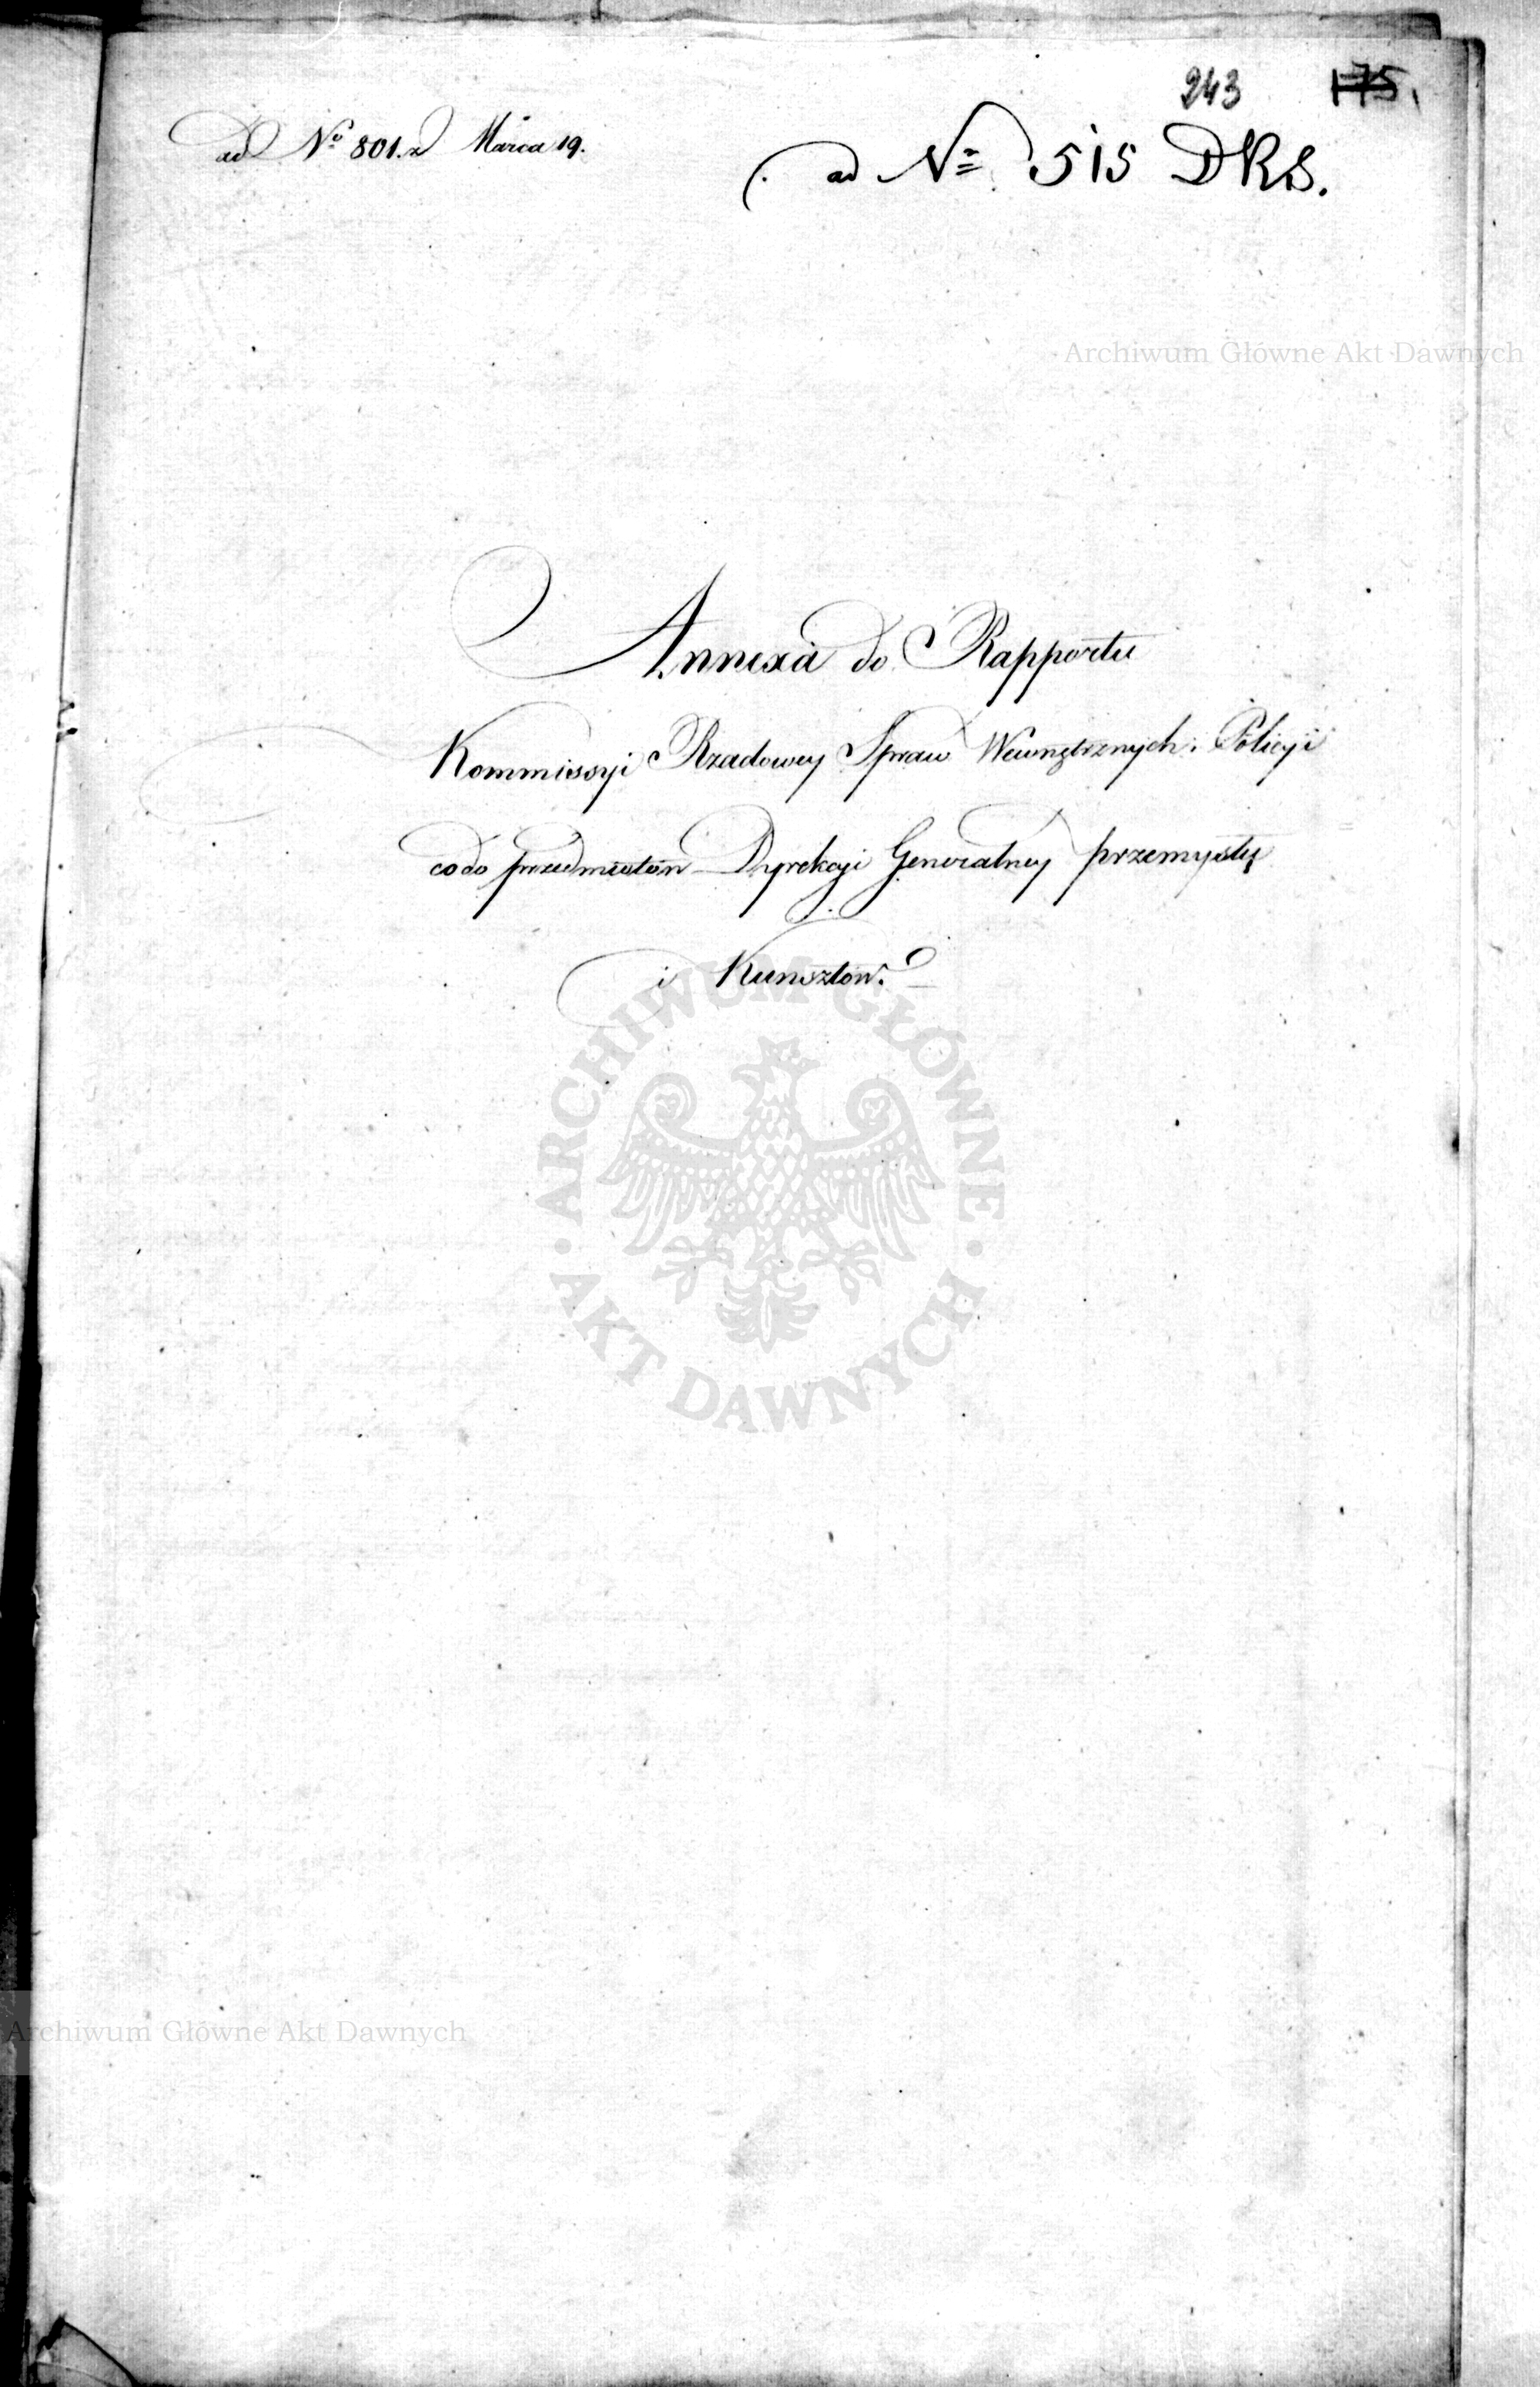 243 175.
ad No 801. z Marca 19.
ad No 515 DKS.
Archiwum Główne Akt Dawnych
Annexa do Rapportu
Kommissyi Rządowey Spraw Wewnętrznych i Policyi
co do przedmiotów Dyrekcyi Generalney przemysłu
i Kunsztów.
ARCHIWUM GŁÓWNE · AKT DAWNYCH ·
Archiwum Główne Akt Dawnych